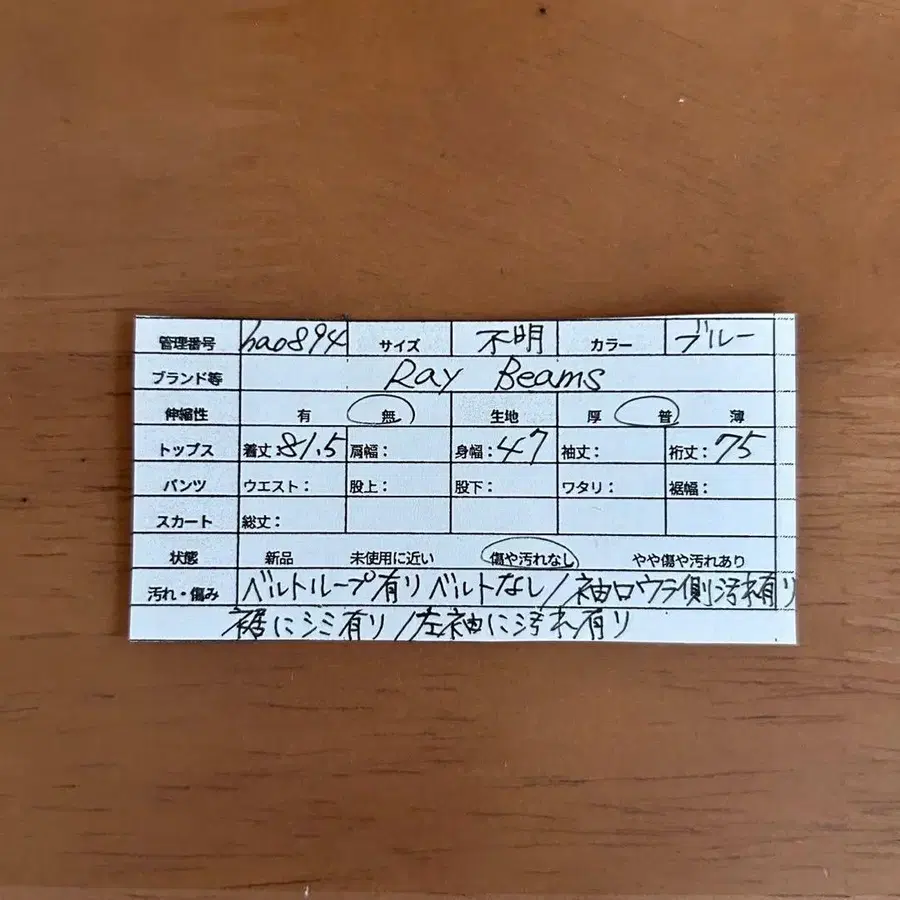 管理番号 hao894 サイズ 不明 カラー ブルー
ブランド等 Ray Beams
伸縮性 有 無 生地 厚 普 薄
トップス 着丈:81.5 肩幅: 身幅:47 袖丈: 裄丈:75
パンツ ウエスト: 股上: 股下: ワタリ: 裾幅:
スカート 総丈:
状態 新品 未使用に近い 傷や汚れなし やや傷や汚れあり
汚れ・傷み ベルトループ有り ベルトなし/袖口ウラ側汚れ有り
裾にシミ有り/左袖に汚れ有り